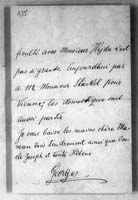 feuille avec Monsieur Hozda n'est
pas si grande. Aujourd'hui part
à 11½ Monsieur Slankel pour
Vienne; les domestiques ont
aussi partis.
Je vous baise les mains chère Ma-
man très tendrement ainsi que l'on-
cle Joseph et tante Hélène
Georges